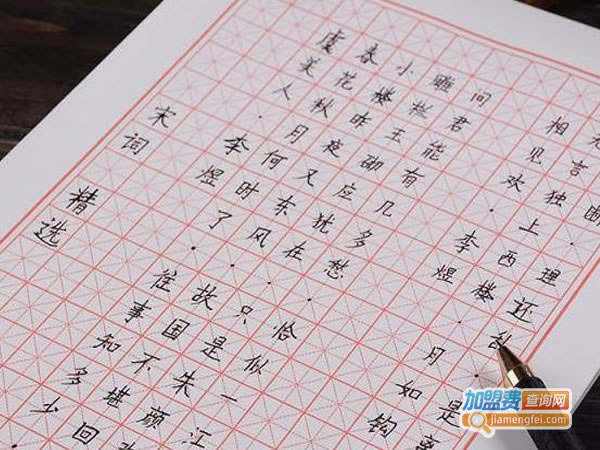 宋词 精选
虞美人·李煜
春花秋月何时了·往事知多少
小楼昨夜又东风·故国不堪回
雕栏玉砌应犹在·只是朱颜
问君能有几多愁·恰似一江
相见欢·李煜
无言独上西楼·月如钩
断·理还乱·是离
加盟费查询网
jiamengfei.com